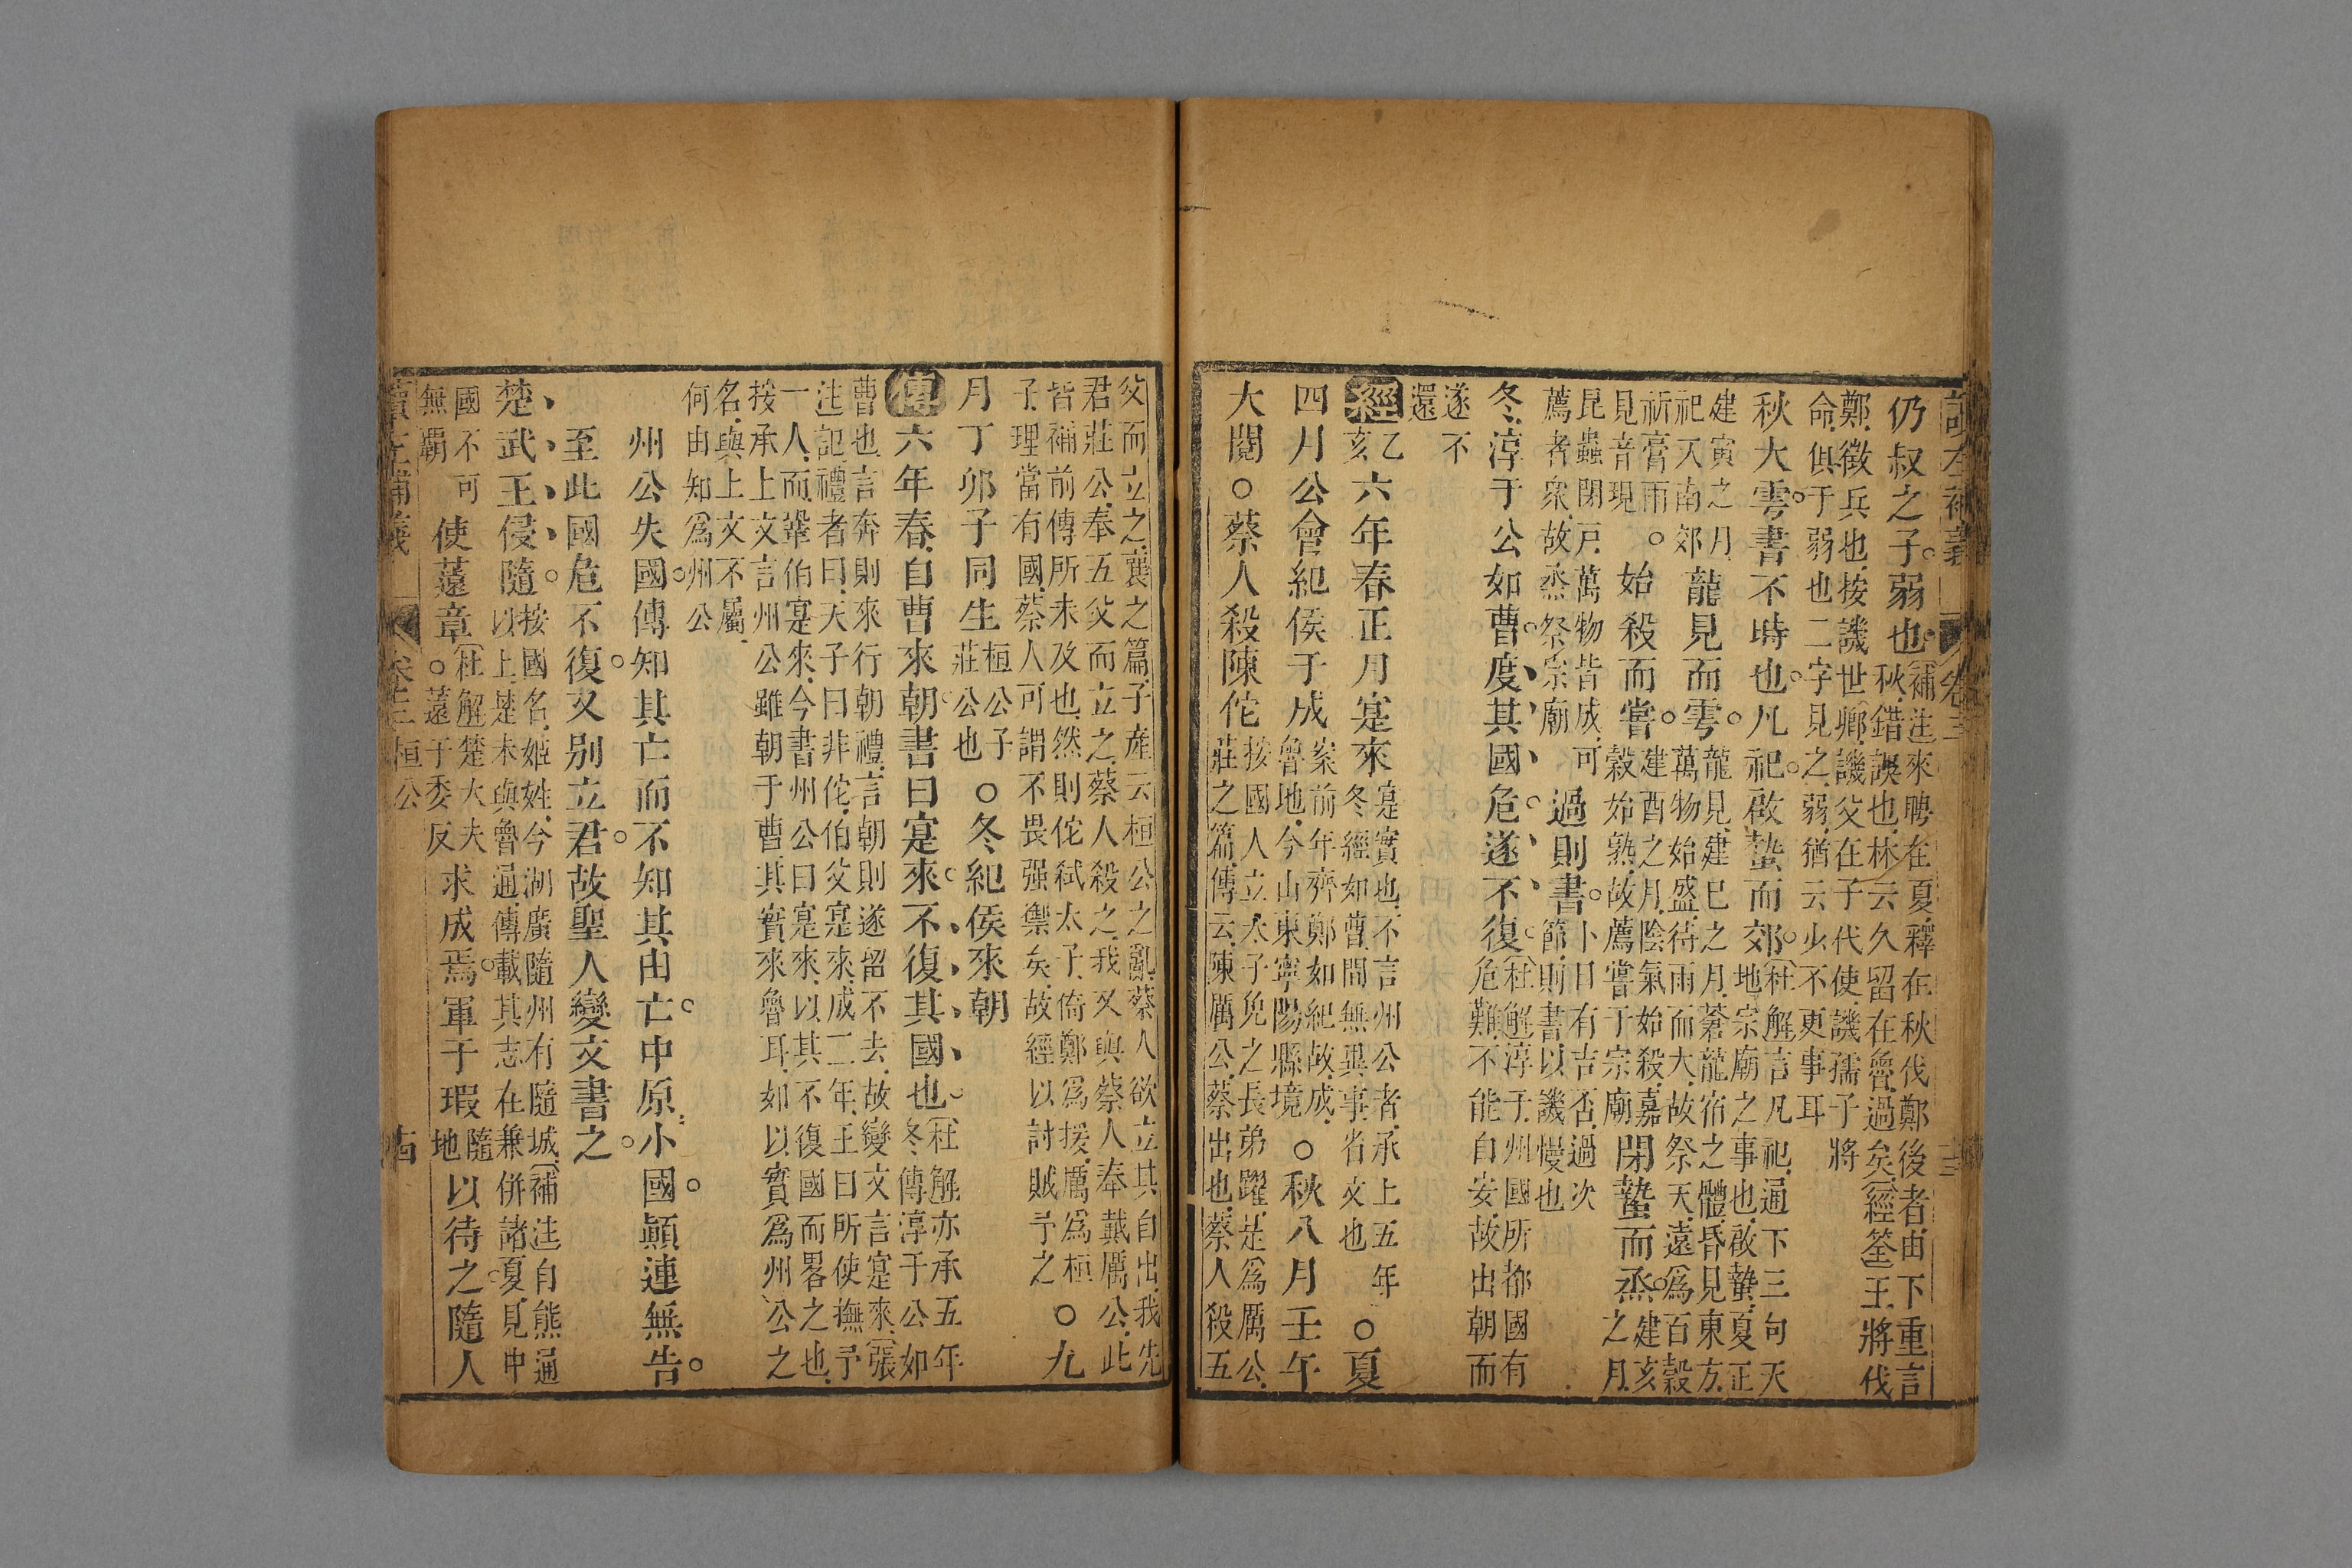 讀左補義 卷三 十三
仍叔之子弱也補注來聘在夏釋在秋伐鄭後者由下重言
秋錯誤也林云久留在魯過矣經筌王將伐
鄭徵兵也按譏世卿譏父在子代使譏孺子將
命俱于弱也二字見之弱猶云少不更事耳
秋大雩書不時也凡祀啟蟄而郊杜解言凡祀通下三句天
地宗廟之事也啟蟄夏正
建寅之月
祀天南郊龍見而雩龍見建巳之月蒼龍宿之體昏見東方
萬物始盛待雨而大故祭天遠爲百穀
祈膏雨
見音現始殺而嘗建酉之月陰氣始殺嘉
穀始熟故薦嘗于宗廟閉蟄而烝建亥
之月
昆蟲閉戶萬物皆成可
薦者衆故烝祭宗廟過則書卜日有吉否過次
節則書以譏慢也
冬淳于公如曹度其國危遂不復杜解淳于州國所都國有
危難不能自安故出朝而
遂不
還
經乙
亥六年春正月寔來寔實也不言州公者承上五年
冬經如曹間無異事省文也○夏
四月公會紀侯于成案前年齊鄭如紀故成
魯地今山東寧陽縣境○秋八月壬午
大閱○蔡人殺陳佗按國人立太子免之長弟躍是爲厲公
莊之篇傳云陳厲公蔡出也蔡人殺五
父而立之襄之篇子產云桓公之亂蔡人欲立其自出我先
君莊公奉五父而立之蔡人殺之我又與蔡人奉戴厲公此
皆補前傳所未及也然則佗弒太子倚鄭爲援厲爲桓
子理當有國蔡人可謂不畏强禦矣故經以討賊予之○九
月丁卯子同生桓公子
莊公也○冬紀侯來朝
傳六年春自曹來朝書曰寔來不復其國也杜解亦承五年
冬傳淳于公如
曹也言奔則來行朝禮言朝則遂留不去故變文言寔來張
注記禮者曰天子曰非佗伯父寔來成二年王曰所使撫予
一人而鞏伯寔來今書州公曰寔來以其不復國而畧之也
按承上文言州公雖朝于曹其實來魯耳如以實爲州公之
名與上文不屬
何由知爲州公
州公失國傳知其亡而不知其由亡中原小國顚連無告
至此國危不復又别立君故聖人變文書之
楚武王侵隨按國名姬姓今湖廣隨州有隨城補注自熊通
以上楚未與魯通傳載其志在兼併諸夏見中
國不可
無覇使薳章杜解楚大夫
○薳于委反求成焉軍于瑕隨
地以待之隨人
讀左補義 卷三 桓公 十四